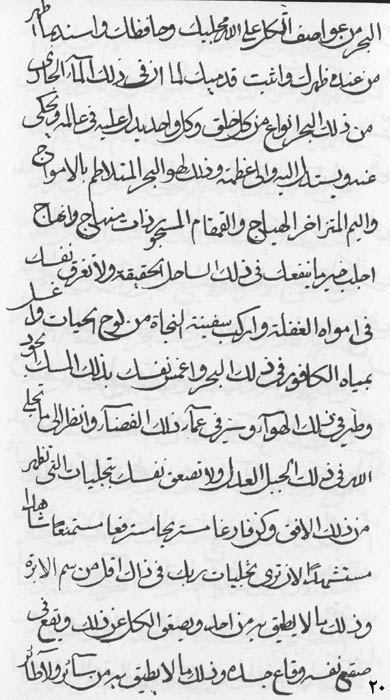 البحر من عواصف الكل على الله مجليك وحافظك واسئد ما اظهر
من عنده ظهرك واثبت قدميك لما ان في ذلك الماء الجاري
من ذلك البحر انواع من كل خلق وكل واحد يدل عليه في عالمه ويحكي
عنه ويستدل اليه والى عظمته وذلك طو البحر المتلاطم بالامواج
واليم المتزاخر الهياج والقمقام المسجور ذات منهاج وانهاج
اجلب خير ما ينفعك في ذلك الساحل الحقيقة ولا تغرق نفسك
في امواه الغفلة واركب سفينة النجاة من لوح الحيات
بمياه الكافور في ذلك البحر واغمس نفسك بذلك المسك
وطير في ذلك الهواء وسر في عماء ذلك الفضاء وانظر الى ما تجلى
الله في ذلك الجبل العدل ولا تصعق نفسك بتجليات التي تظهر
من ذلك الافق وكن فارغا مستريحا مسترفعا مستمنعا
لان ترى تجليات ربك في ذاك اقل من سم الابرة
وذلك ما لا يطيق به من احد ويصعق الكل عن ذلك ويقع في
صقع نفسه وقاع جسده وذلك ما لا يطيق به من سائر
٢٠